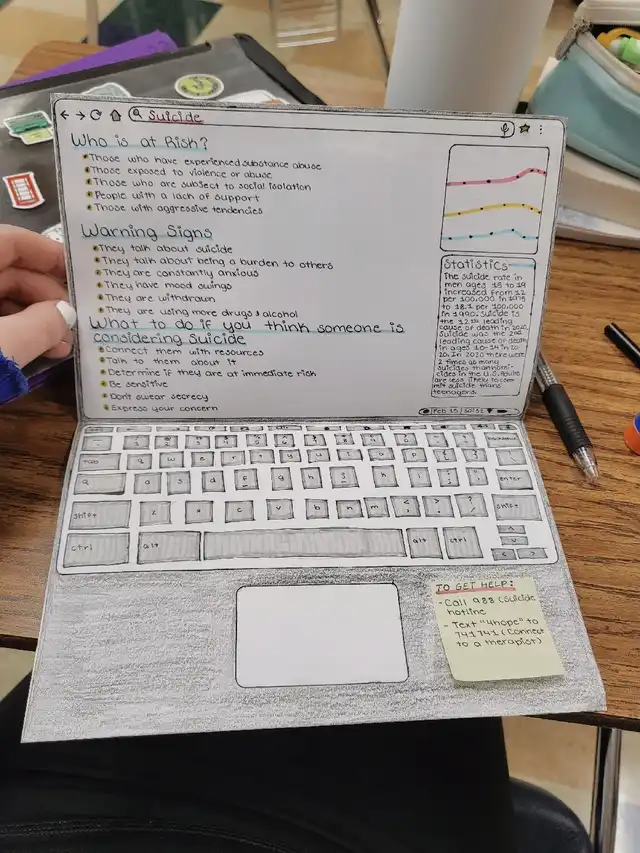 Suicide
Who is at Risk?
Those who have experienced substance abuse
Those exposed to violence or abuse
Those who are subject to social isolation
People with a lack of support
Those with aggressive tendencies
Warning Signs
They talk about suicide
They talk about being a burden to others
They are constantly anxious
They have mood swings
They are withdrawn
They are using more drugs & alcohol
What to do if you think someone is
considering Suicide
Connect them with resources
Talk to them about it
Determine if they are at immediate risk
Be sensitive
Don't swear secrecy
Express your concern
Statistics
The suicide rate in
men ages 15 to 19
increased from 12
per 100,000 in 1975
to 18.1 per 100,000
in 1990. Suicide is
the 12th leading
cause of death in 2020.
Suicide was the 2nd
leading cause of death
in ages 10-14 in 20
20. In 2020 there were
2 times as many
suicides than homi-
cides in the U.S. Adults
are less likely to com
mit suicide than
teenagers.
Feb 15
tab q w e r t y u i o p
a s d f g h j k l
enter
shift z x c v b n m shift
ctrl alt alt ctrl
TO GET HELP:
- Call 988 (Suicide
hotline
- Text "4hope" to
741741 (Connect
to a therapist)